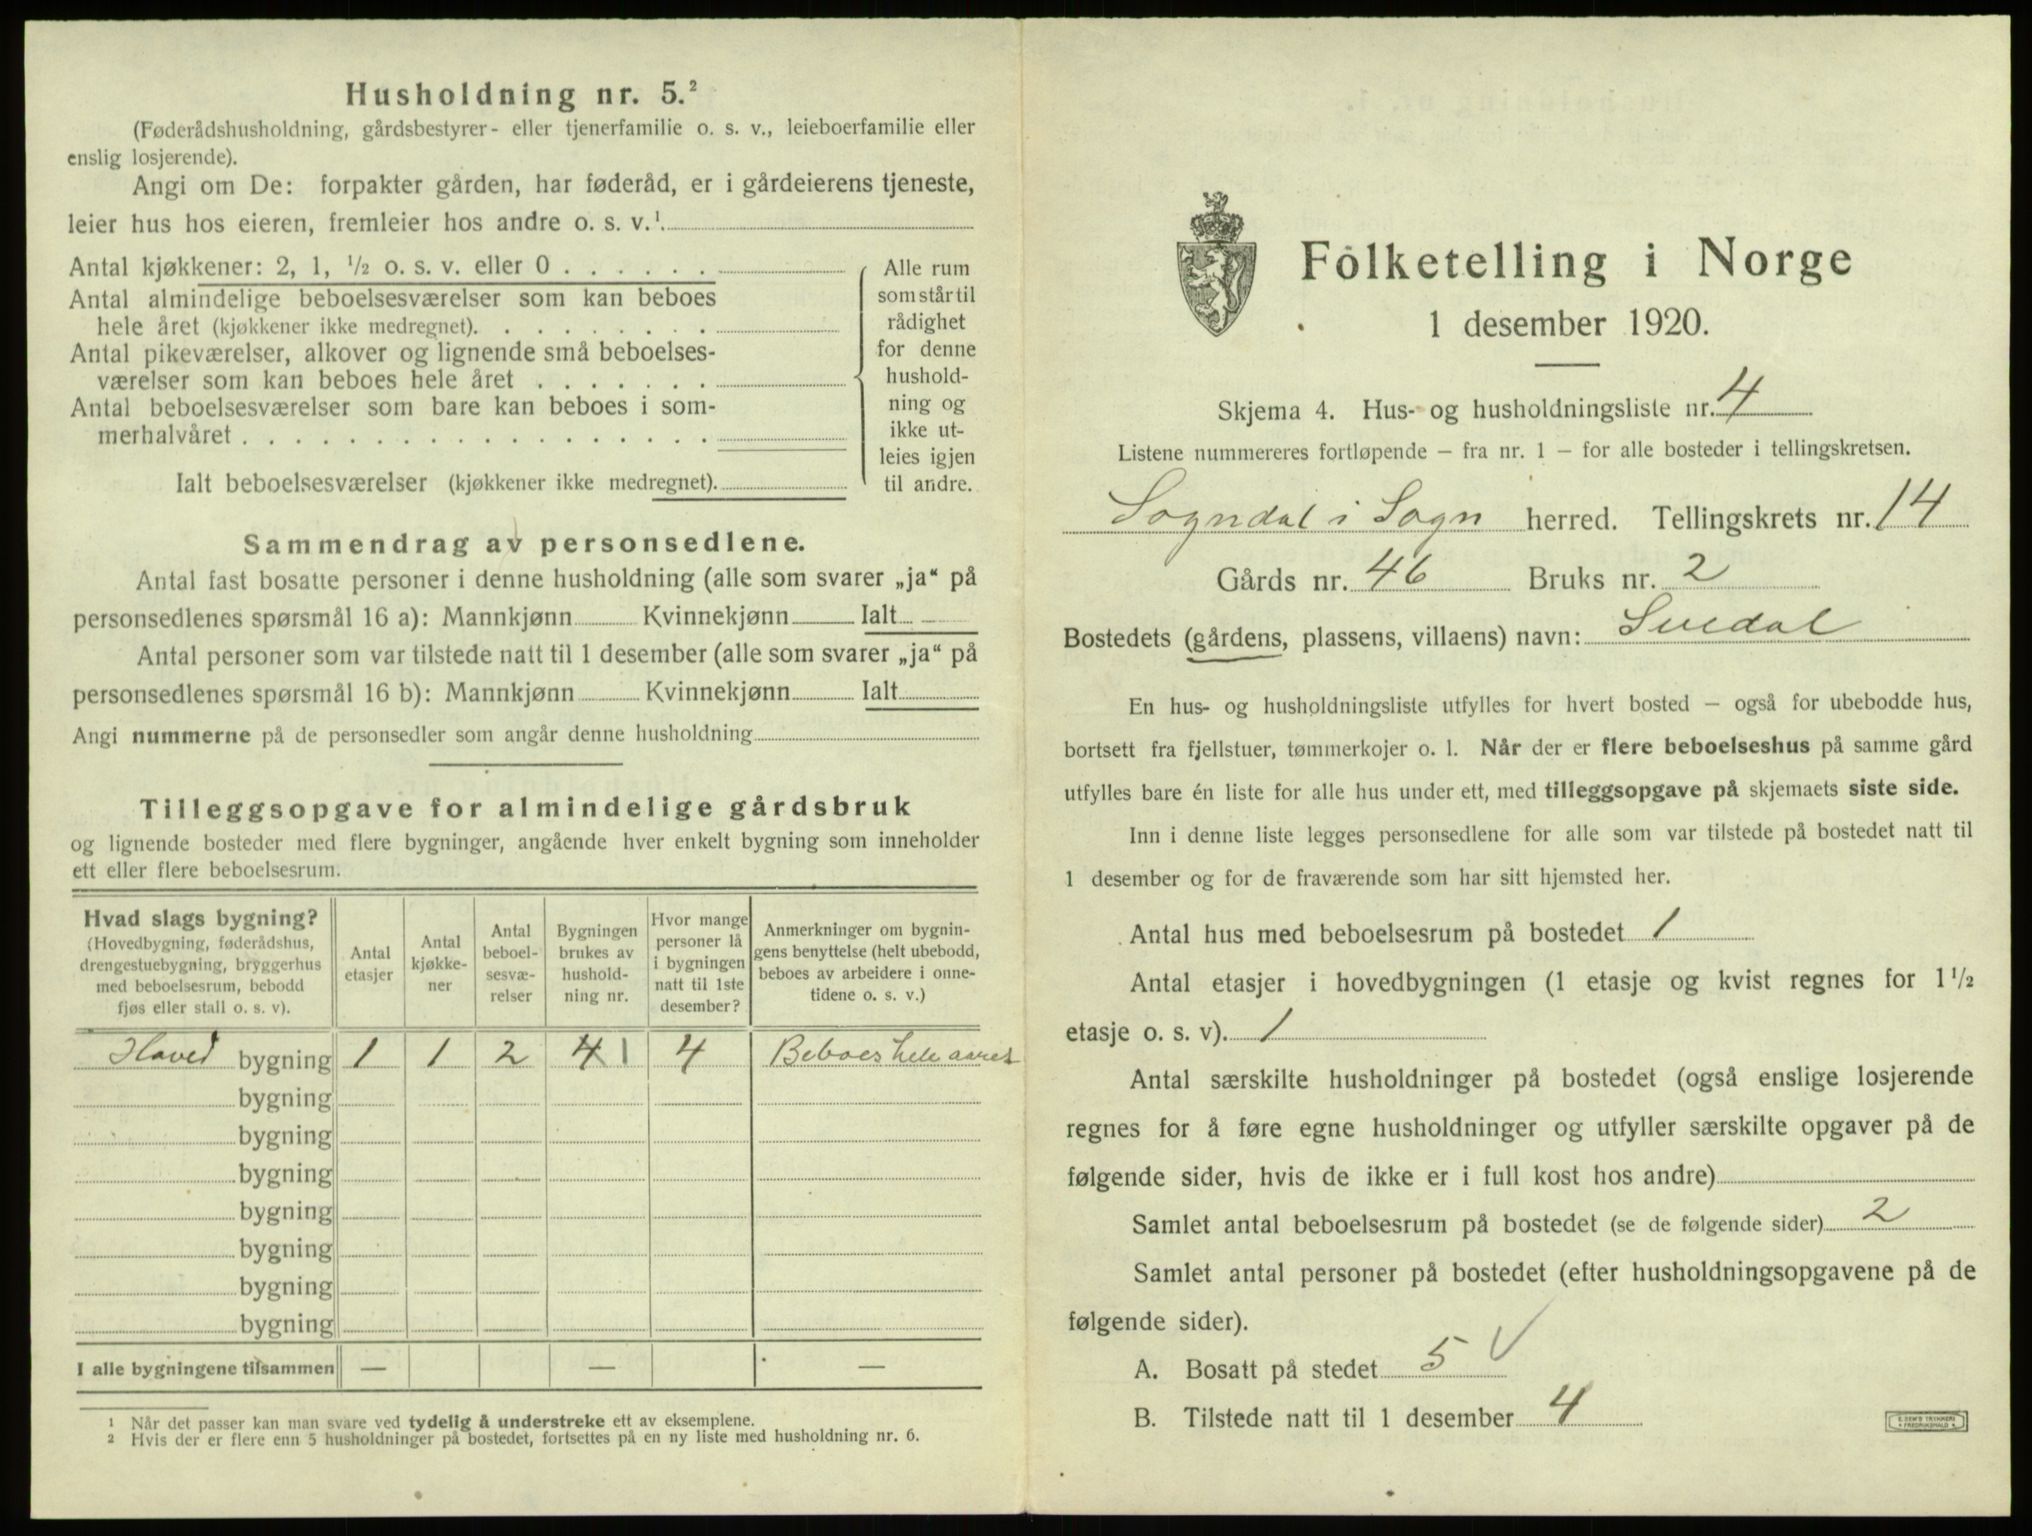 Husholdning nr. 5.²
(Føderådshusholdning, gårdsbestyrer- eller tjenerfamilie o. s. v., leieboerfamilie eller
enslig losjerende).
Angi om De: forpakter gården, har føderåd, er i gårdeierens tjeneste,
leier hus hos eieren, fremleier hos andre o. s. v.¹
Antal kjøkkener: 2, 1, ½ o. s. v. eller 0 . . . . . .
Antal almindelige beboelsesværelser som kan beboes
hele året (kjøkkener ikke medregnet). . . . . . . . .
Antal pikeværelser, alkover og lignende små beboelses-
værelser som kan beboes hele året . . . . . . .
Antal beboelsesværelser som bare kan beboes i som-
merhalvåret . . . . . . . . . . . . . . . . . .
Ialt beboelsesværelser (kjøkkener ikke medregnet).
Alle rum
som står til
rådighet
for denne
hushold-
ning og
ikke ut-
leies igjen
til andre.
Sammendrag av personsedlene.
Antal fast bosatte personer i denne husholdning (alle som svarer „ja“ på
personsedlenes spørsmål 16 a): Mannkjønn Kvinnekjønn Ialt
Antal personer som var tilstede natt til 1 desember (alle som svarer „ja“ på
personsedlenes spørsmål 16 b): Mannkjønn Kvinnekjønn Ialt
Angi nummerne på de personsedler som angår denne husholdning
Tilleggsopgave for almindelige gårdsbruk
og lignende bosteder med flere bygninger, angående hver enkelt bygning som inneholder
ett eller flere beboelsesrum.
Hvad slags bygning?
(Hovedbygning, føderådshus,
drengestuebygning, bryggerhus
med beboelsesrum, bebodd
fjøs eller stall o. s. v).
Antal
etasjer
Antal
kjøkke-
ner
Antal
beboel-
sesvæ-
relser
Bygningen
brukes av
hushold-
ning nr.
Hvor mange
personer lå
i bygningen
natt til 1ste
desember?
Anmerkninger om bygnin-
gens benyttelse (helt ubebodd,
beboes av arbeidere i onne-
tidene o. s. v.)
Hoved bygning 1 1 2 4 1 4 Beboes hele aaret
bygning
bygning
bygning
bygning
bygning
bygning
bygning
I alle bygningene tilsammen — — —
¹ Når det passer kan man svare ved tydelig å understreke ett av eksemplene.
² Hvis der er flere enn 5 husholdninger på bostedet, fortsettes på en ny liste med husholdning nr. 6.
Folketelling i Norge
1 desember 1920.
Skjema 4. Hus- og husholdningsliste nr. 4
Listene nummereres fortløpende – fra nr. 1 – for alle bosteder i tellingskretsen.
Sogndal i Sogn herred. Tellingskrets nr. 14
Gårds nr. 46 Bruks nr. 2
Bostedets (gårdens, plassens, villaens) navn: Svedal
En hus- og husholdningsliste utfylles for hvert bosted – også for ubebodde hus,
bortsett fra fjellstuer, tømmerkojer o. l. Når der er flere beboelseshus på samme gård
utfylles bare én liste for alle hus under ett, med tilleggsopgave på skjemaets siste side.
Inn i denne liste legges personsedlene for alle som var tilstede på bostedet natt til
1 desember og for de fraværende som har sitt hjemsted her.
Antal hus med beboelsesrum på bostedet 1
Antal etasjer i hovedbygningen (1 etasje og kvist regnes for 1½
etasje o. s. v). 1
Antal særskilte husholdninger på bostedet (også enslige losjerende
regnes for å føre egne husholdninger og utfyller særskilte opgaver på de
følgende sider, hvis de ikke er i full kost hos andre)
Samlet antal beboelsesrum på bostedet (se de følgende sider) 2
Samlet antal personer på bostedet (efter husholdningsopgavene på de
følgende sider).
A. Bosatt på stedet 5 V
B. Tilstede natt til 1 desember 4
E. SEM'S TRYKKERI
FREDRIKSHALD